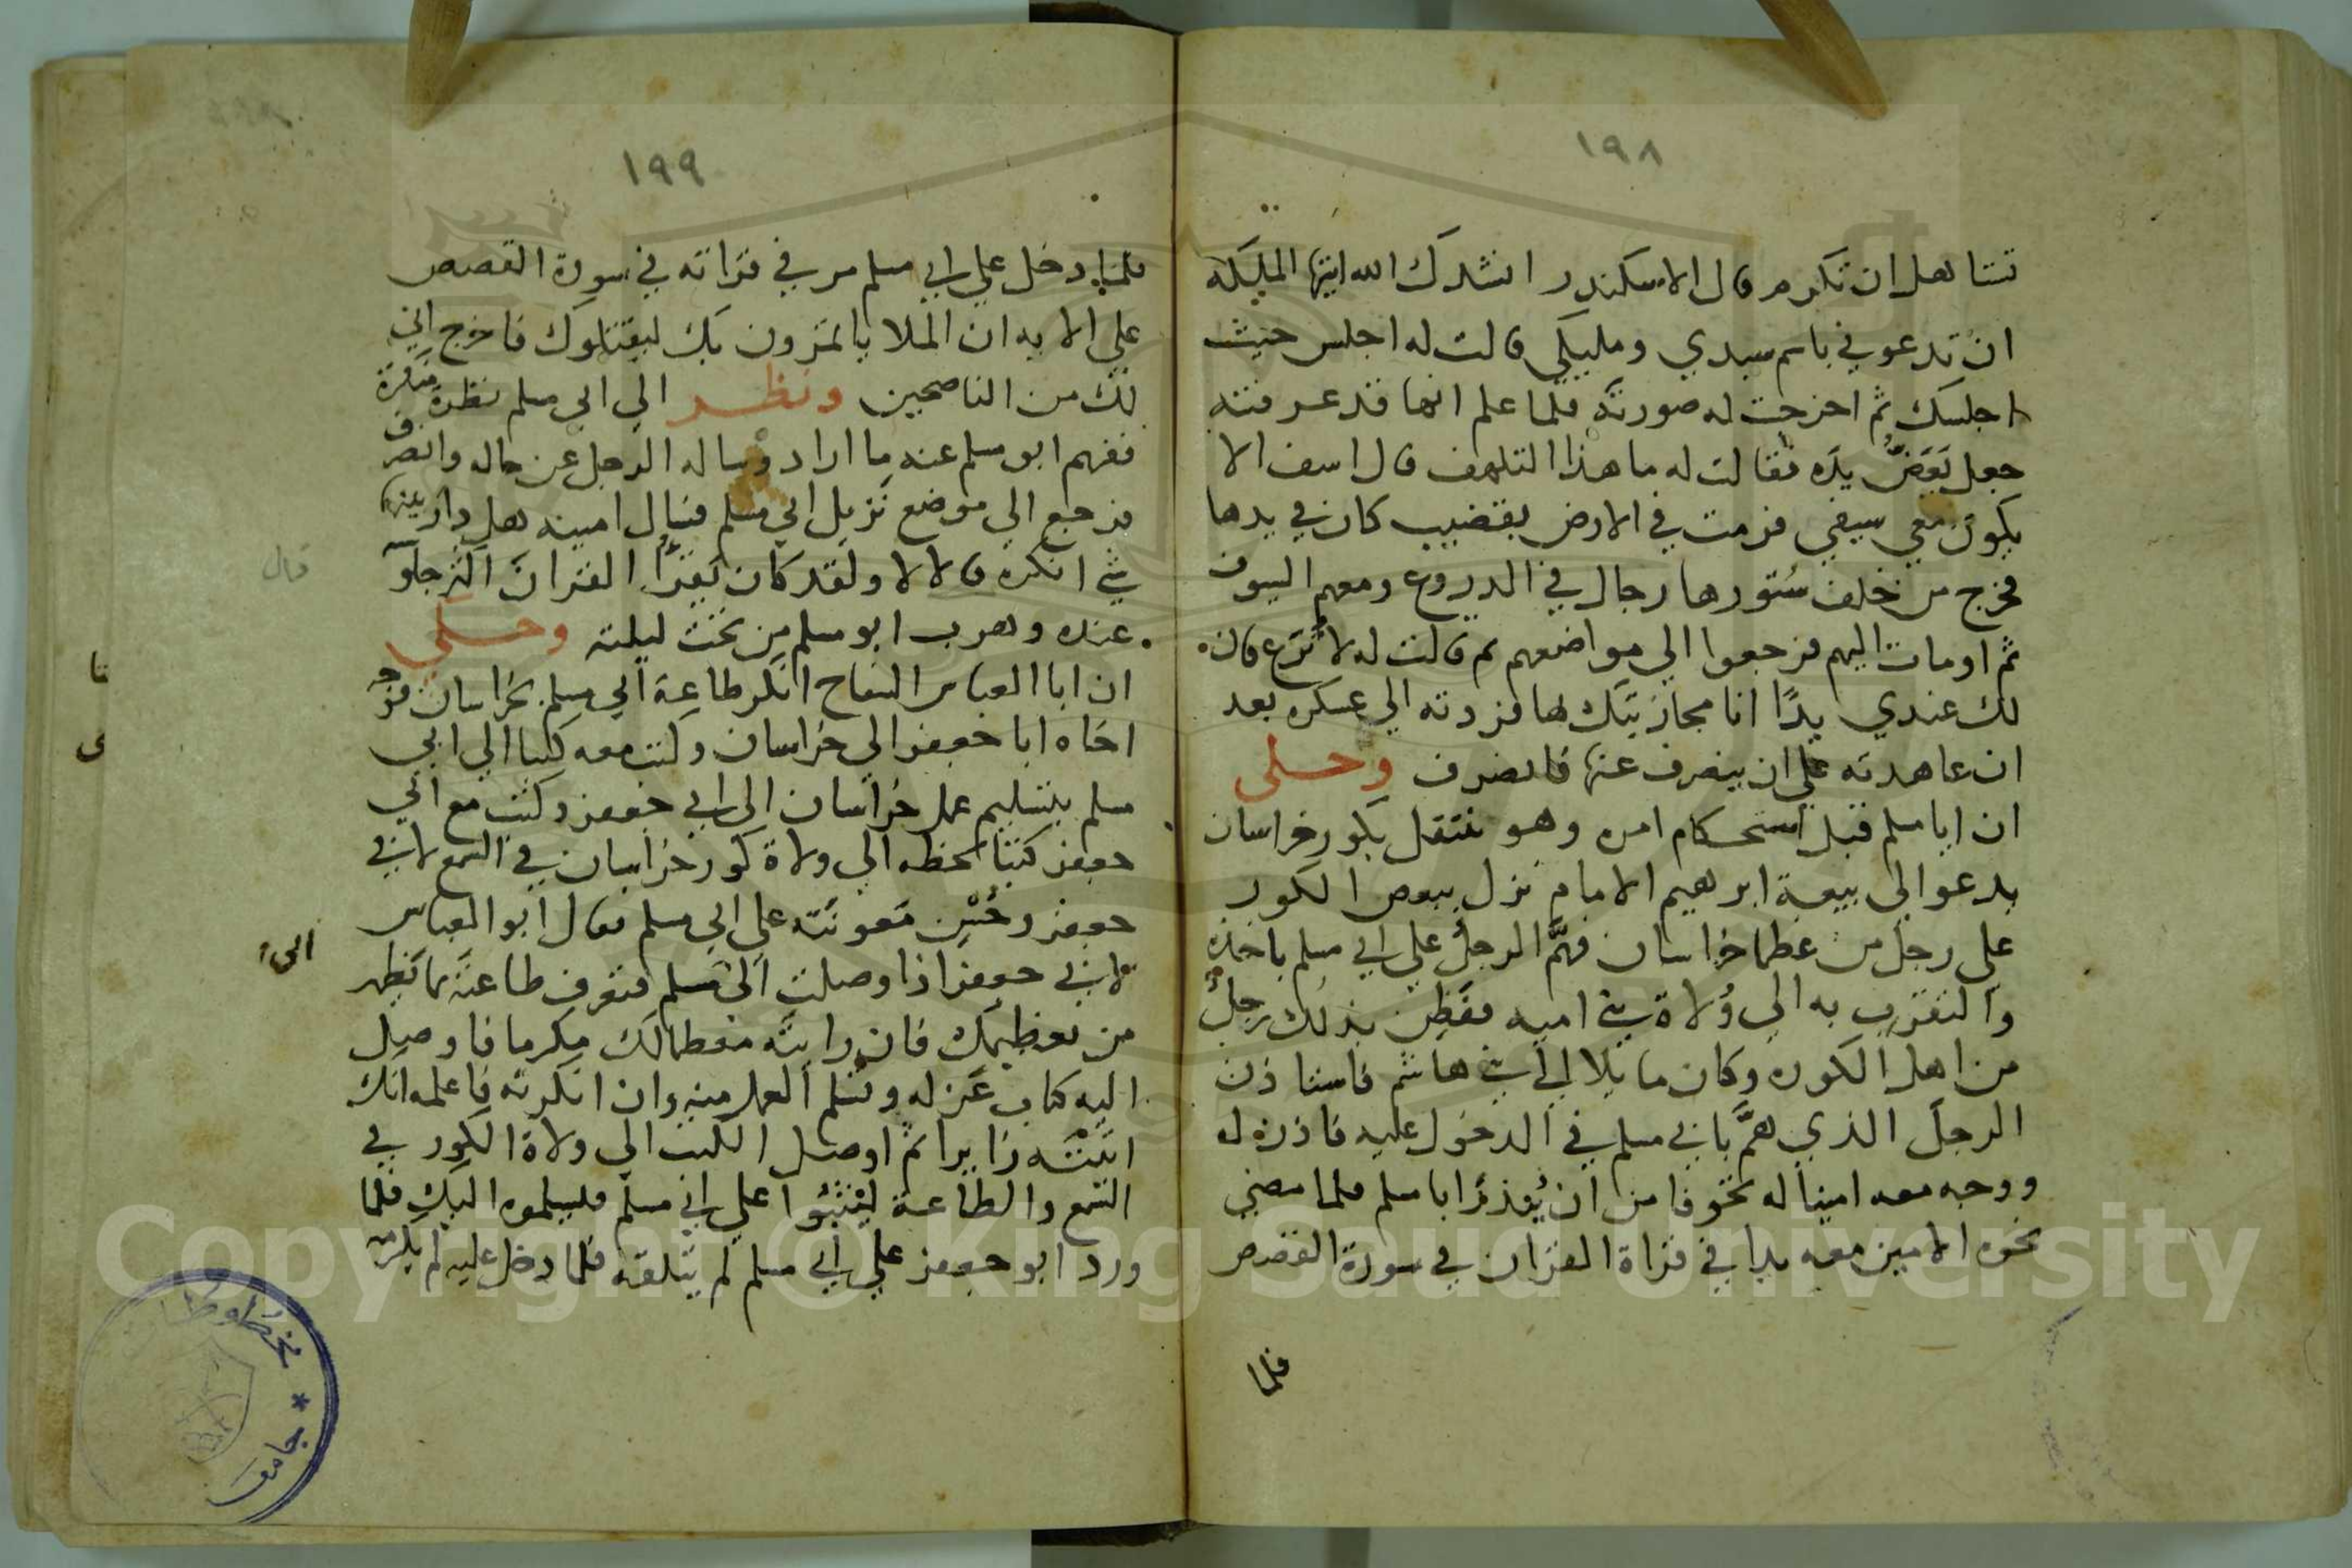 ١٩٨
تتاهل ان تكرم قال الاسكندر انشدك الله ايتها المليكه
ان تدعوني باسم سيدي ومليكي قالت له اجلس حيث
اجلسك ثم اخرجت له صورته فلما علم انها قد عرفته
جعل يعض يده فقالت له ما هذا التلهف قال اسف الا
يكون معي سيفي فرمت في الارض بقضيب كان في يدها
فخرج من خلف ستورها رجال في الدروع ومعهم السيوف
ثم اومات اليهم فرجعوا الى مواضعهم ثم قالت له لا ترع فان
لك عندي يدًا انا مجازيتك لها فردته الي عسكره بعد
ان عاهدته علي ان ينصرف عنها فانصرف وحكى
ان ابا مسلم قبل استحكام امره وهو ينتقل بكور خراسان
يدعو الى بيعة ابرهيم الامام نزل ببعض الكور
علي رجل من عظما خراسان فهمَّ الرجل علي ابي مسلم باخذه
والتقرب به الي وُلاة بني اميه ففطن بذلك رجل
من اهل الكوره وكان مايلا الي بني هاشم فاستاذن
الرجل الذي همَّ بابي مسلم في الدخول عليه فاذن له
ووجه معه امينا له تخوفا من ان يُعذر ابا مسلم فلما مضي
نحوه الامين معه بدا في قراة القران في سورة القصص
فلما
١٩٩
فلما دخل علي ابي مسلم مر في قراته في سورة القصص
علي الايه ان الملا ياتمرون بك ليقتلوك فاخرج اني
لك من الناصحين ونظر الي ابي مسلم نظرة منكرة
ففهم ابو مسلم عنه ما اراد وساله الرجل عن حاله وانصرف
فرجع الي موضع نزيل ابي مسلم فسال امينه هل دار بينهما
شي انكره قال لا ولقد كان يقرأ القران اكثر جلوسه
عنده وهرب ابو مسلم من تحت ليلته وحكي
ان ابا العباس السفاح انكر طاعة ابي مسلم بخراسان فوجه
اخاه ابا جعفر الي خراسان وكتب معه كتبا الي ابي
مسلم بتسليم عمل خراسان الى ابي جعفر وكتب مع ابي
جعفر كتبًا بخطه الي ولاة كور خراسان في السمع لابي
جعفر وحُسْن مَعونَته علي ابي مسلم فقال ابو العباس
لابي جعفر اذا وصلت الى مسلم فتعرف طاعته بما يظهر
الى
من تعظيمك فان رايته معظما لك مكرما فاوصل
اليه كتاب عزله وتسلم العمل منه وان انكرته فاعلمه انك
اتيته زايرا ثم اوصل الكتب الي ولاة الكور في
السمع والطاعة ليثبُوا علي ابي مسلم فيسلموه اليك فلما
ورد ابو جعفر علي ابي مسلم لم يتلقه فلما دخل عليه لم يكرمه
قال
مخطوطات * جامعة
Copyright © King Saud University